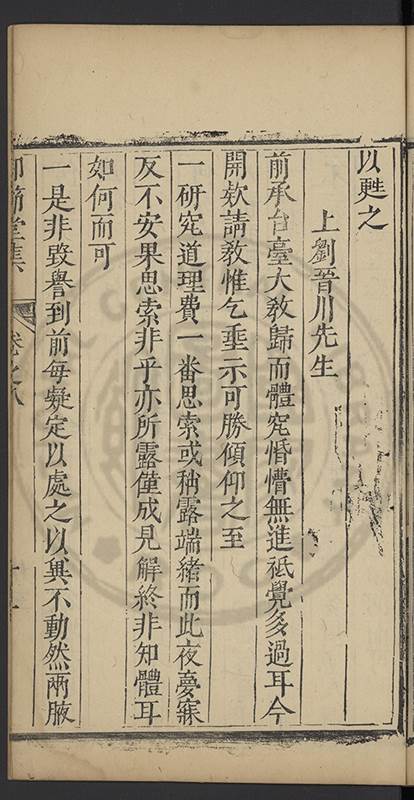 以甦之
上劉晉川先生
前承台臺大教歸而體究惛懵無進祗覺多過耳今
開欵請教惟乞垂示可勝傾仰之至
一研究道理費一番思索或稍露端緒而此夜夢寐
反不安果思索非乎亦所露僅成見解終非知體耳
如何而可
一是非毀譽到前每凝定以處之以與不動然兩腋
仰節堂集 卷之八